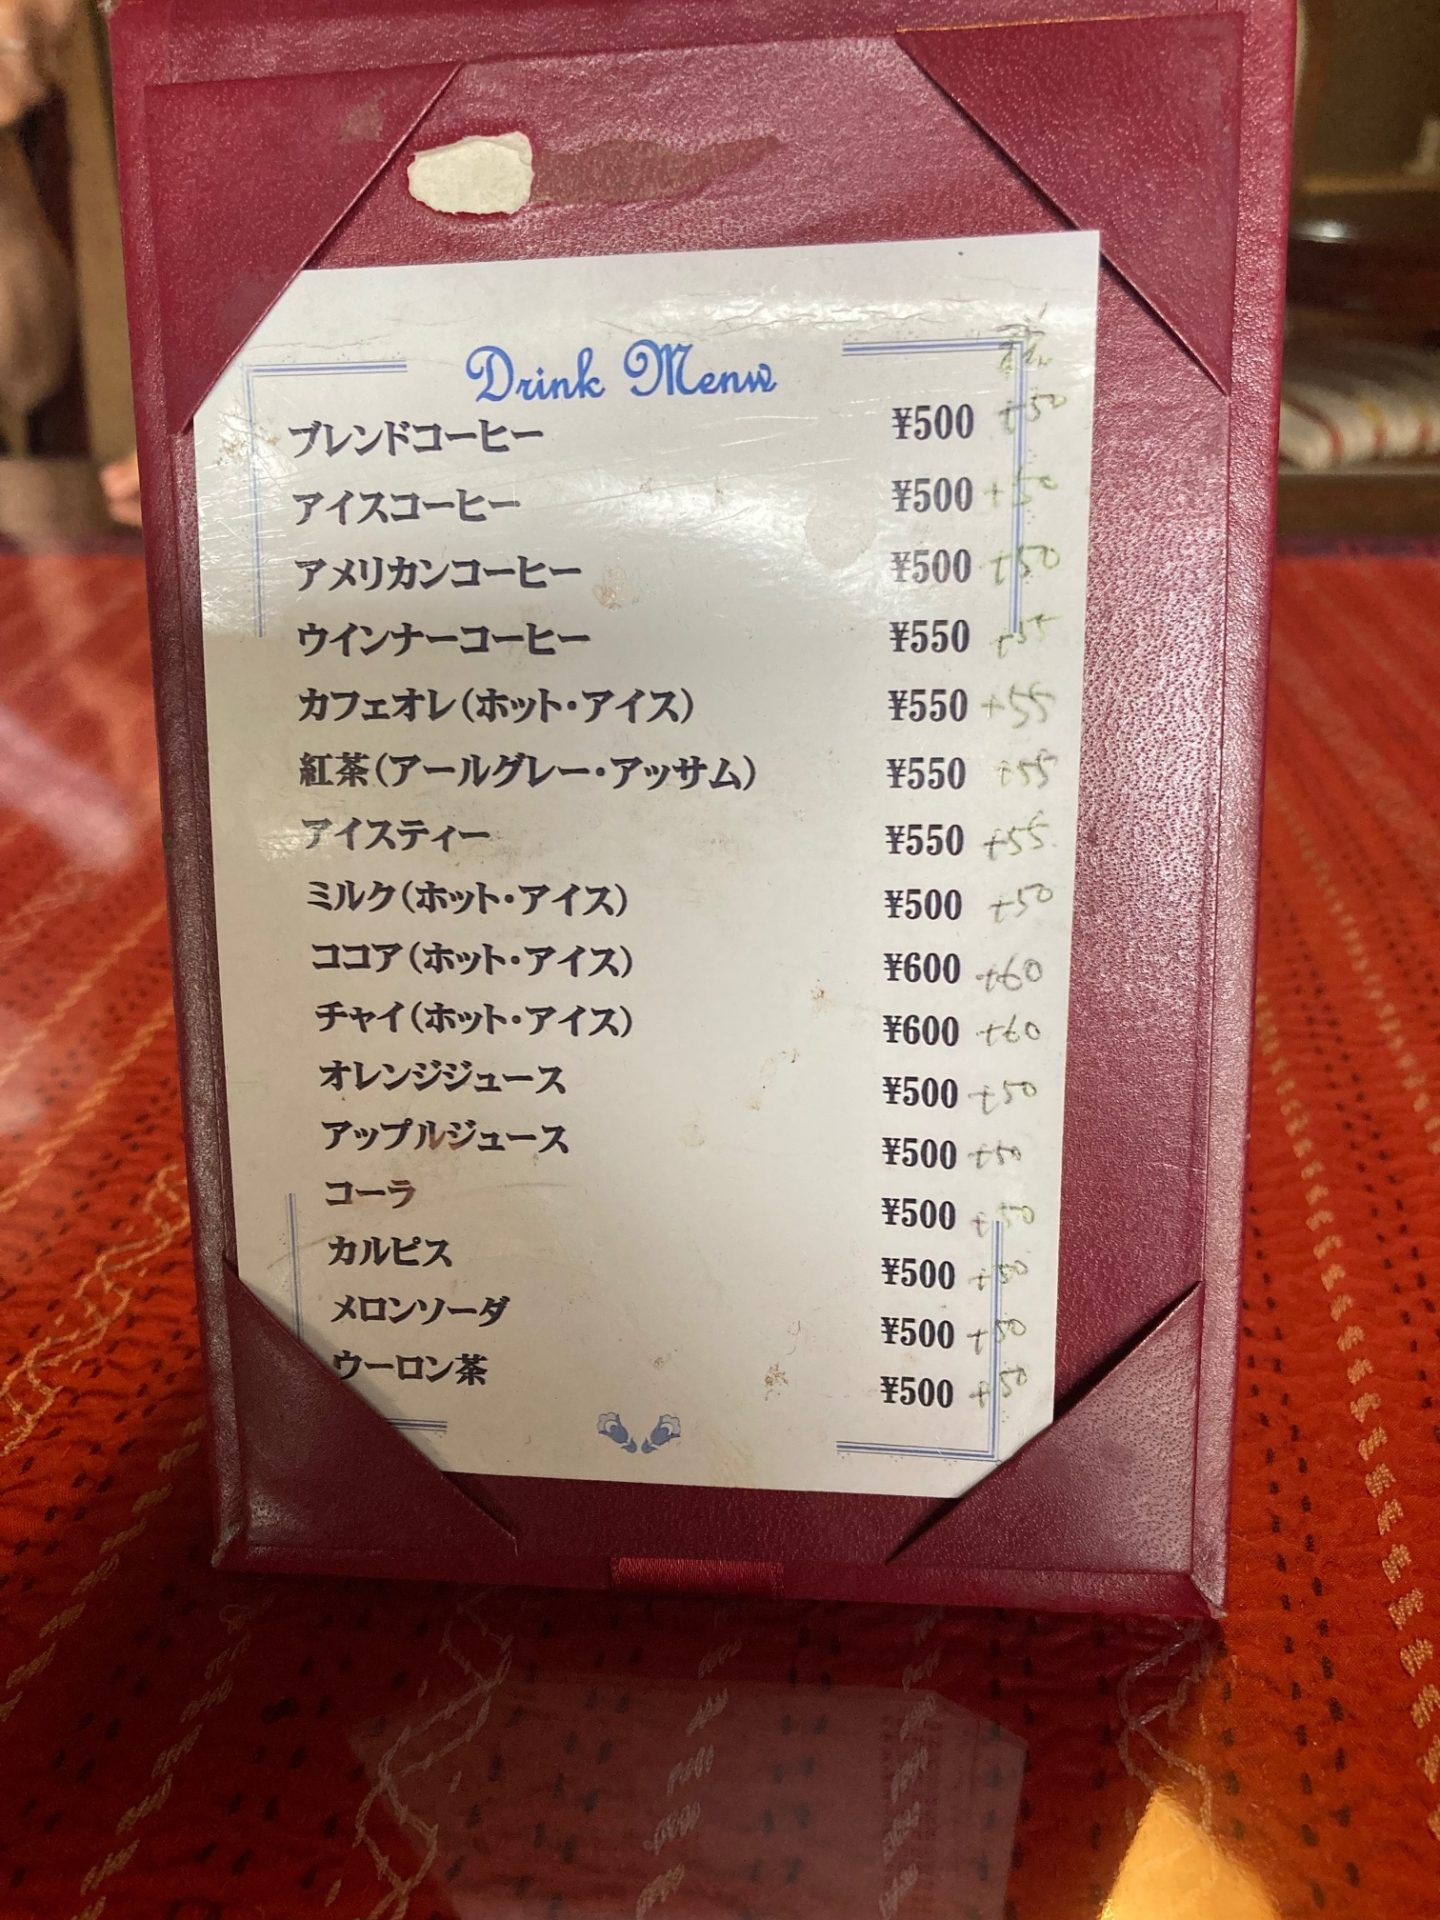 Drink Menu
ブレンドコーヒー ¥500 +50
アイスコーヒー ¥500 +50
アメリカンコーヒー ¥500 +50
ウインナーコーヒー ¥550 +55
カフェオレ(ホット・アイス) ¥550 +55
紅茶(アールグレー・アッサム) ¥550 +55
アイスティー ¥550 +55
ミルク(ホット・アイス) ¥500 +50
ココア(ホット・アイス) ¥600 +60
チャイ(ホット・アイス) ¥600 +60
オレンジジュース ¥500 +50
アップルジュース ¥500 +50
コーラ ¥500 +50
カルピス ¥500 +50
メロンソーダ ¥500 +50
ウーロン茶 ¥500 +50